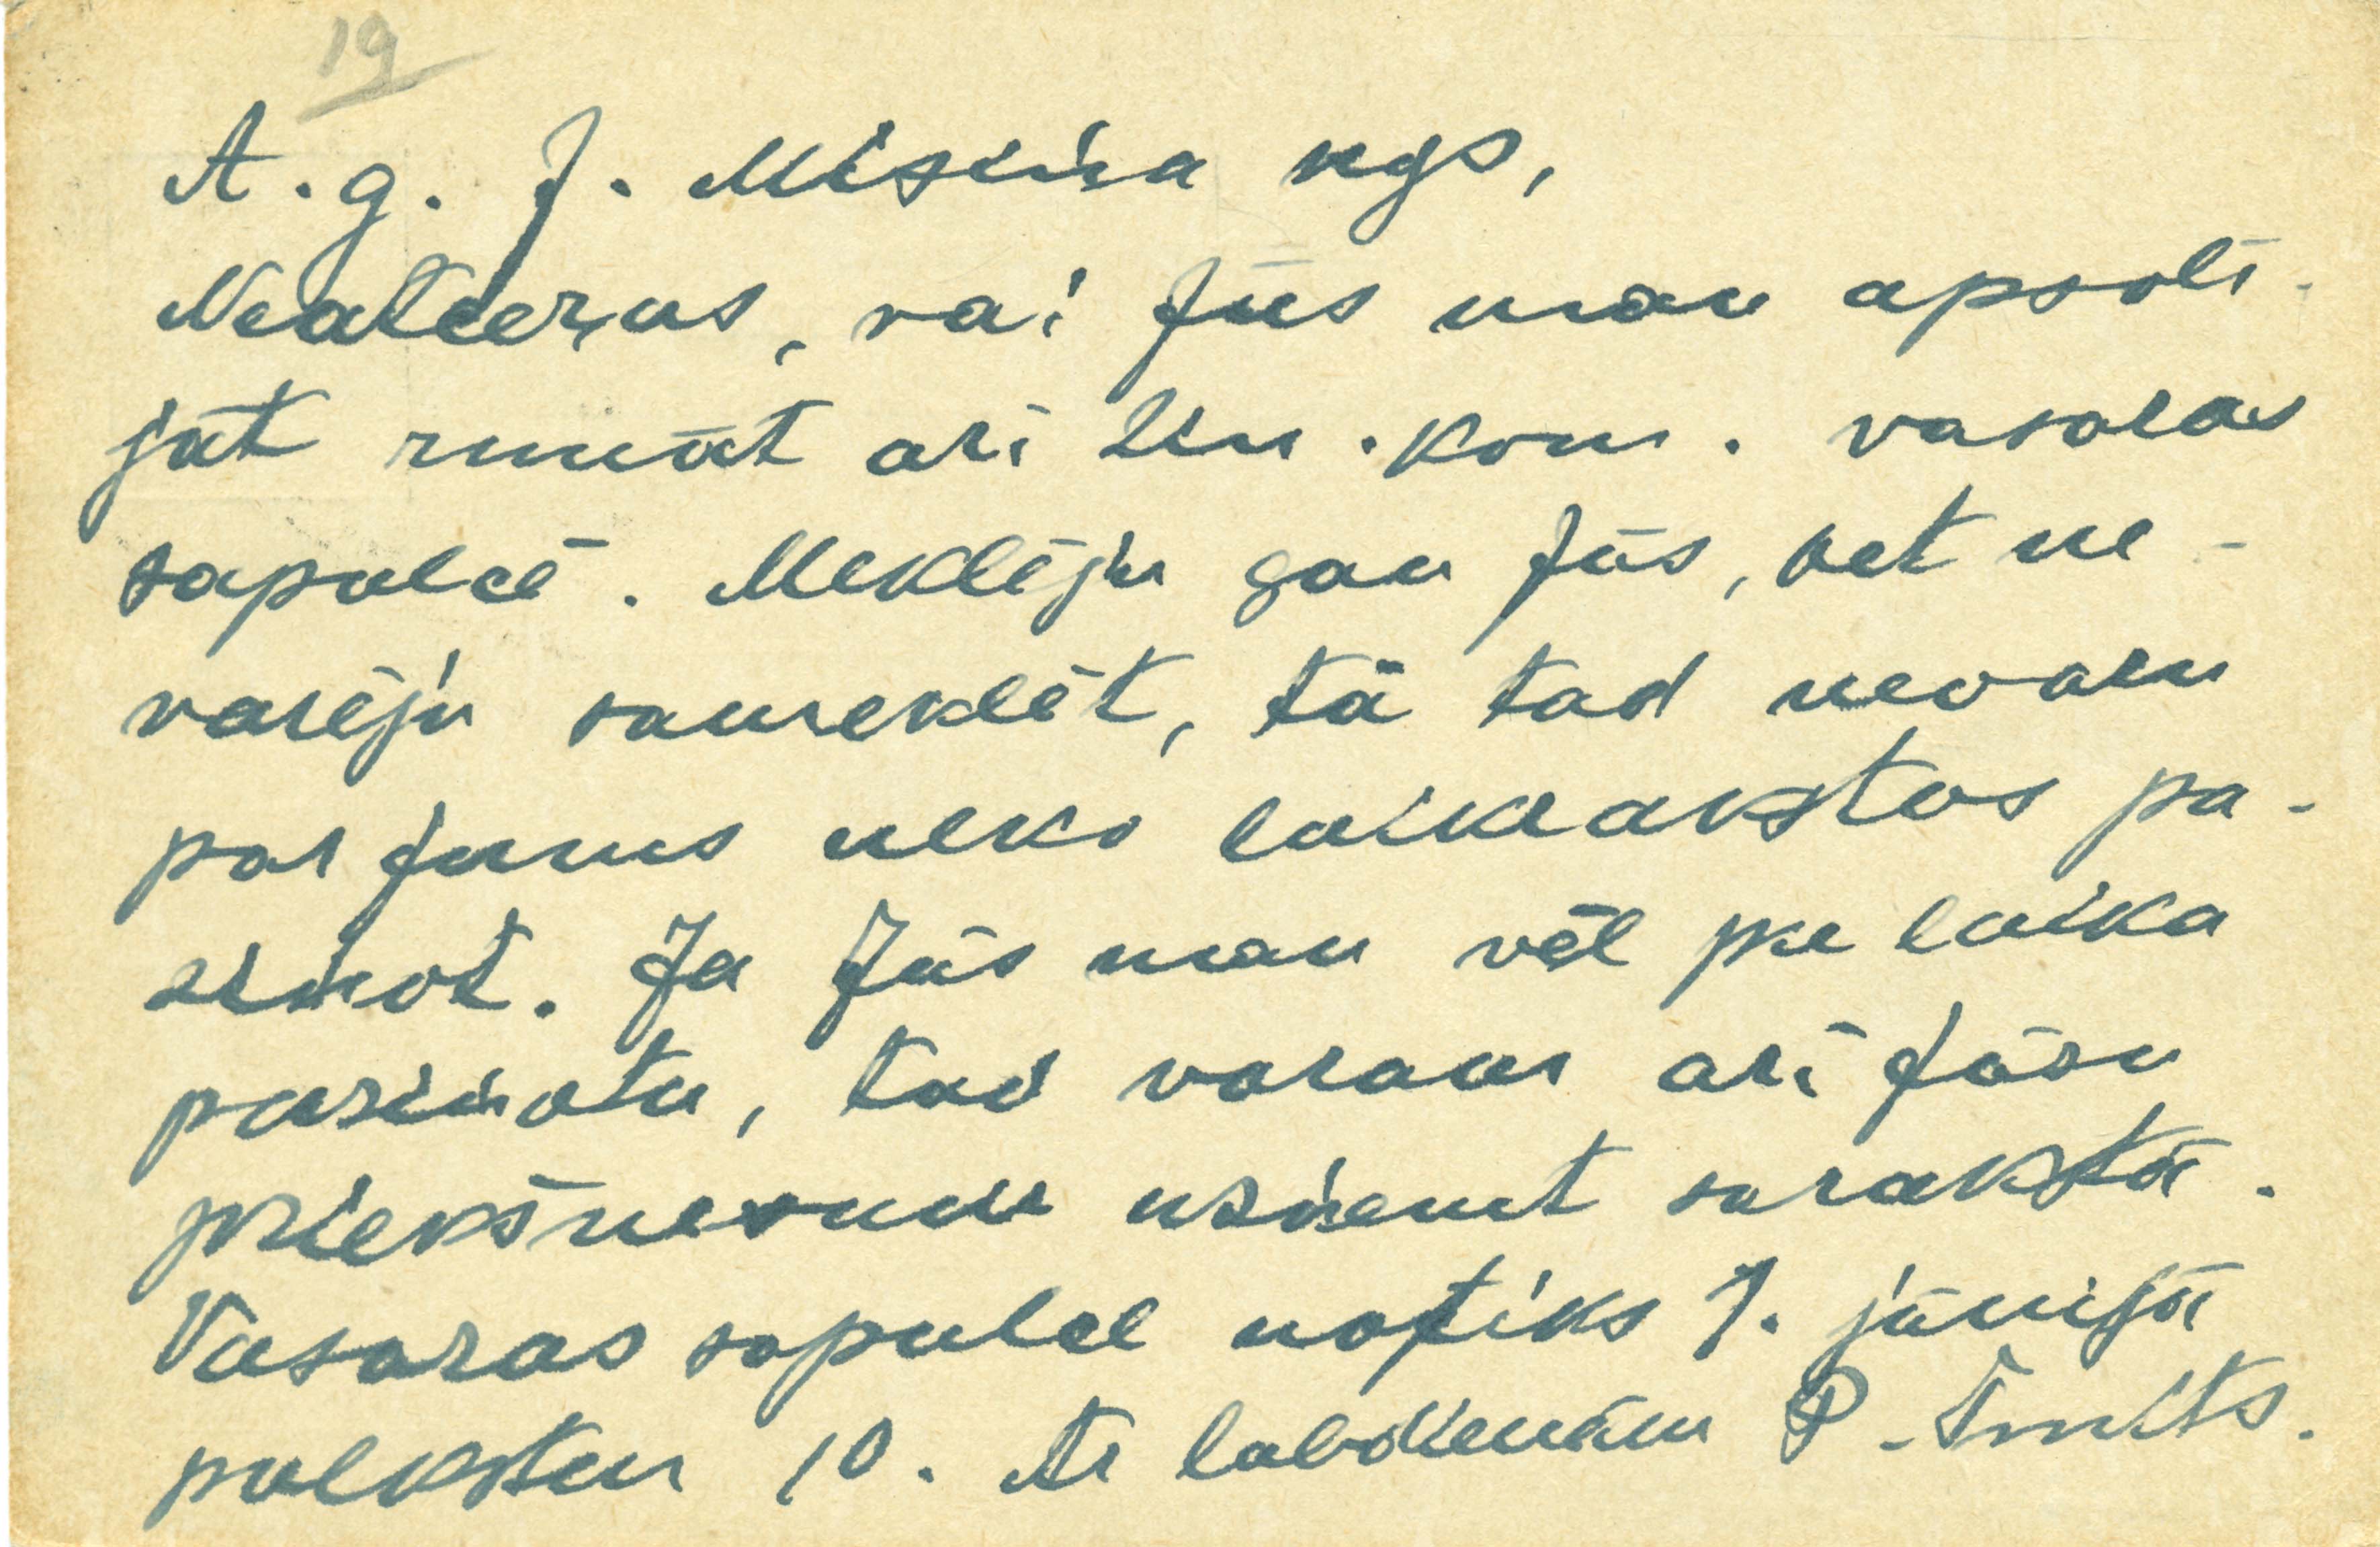 19
A. g. J. Misiņa kgs,
Neatceros, vai Jūs man apsolī-
jāt runāt arī Zin. Kom. vasaras
sapulcē. Meklēju gan Jūs, bet ne-
varēju sameklēt, tā tad nevaru
par Jums neko laikrakstos pa-
ziņot. Ja Jūs man vēl pie laika
paziņotu, tad varam arī Jūsu
priekšnesumu uzņemt sarakstā.
Vasaras sapulce notiks 7. jūnijā
pulksten 10. Ar labdienām P. Šmits.